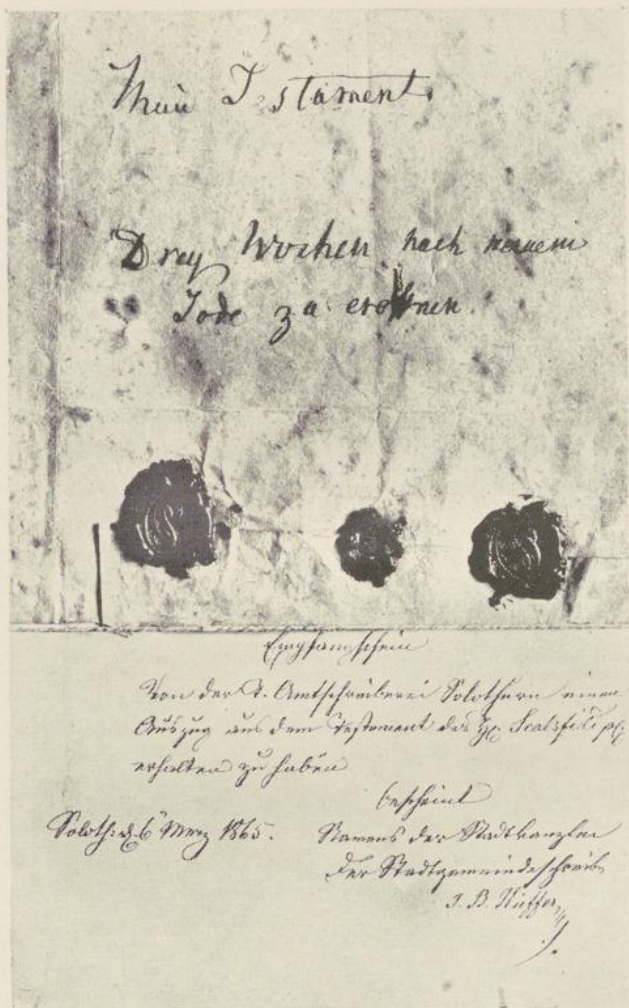 Mein Testament.
Drey Wochen nach meinem
Tode zu eröffnen.
Empfangschein
Von der T. Amtschreiberei Solothurn einen
Auszug aus dem Testament des Hr. Sealsfield sel.
erhalten zu haben
bescheint
Soloth: d. 6 Merz 1865. Namens der Stadtkanzlei
Der Stadtgemeindeschreiber
J. B. Küffer